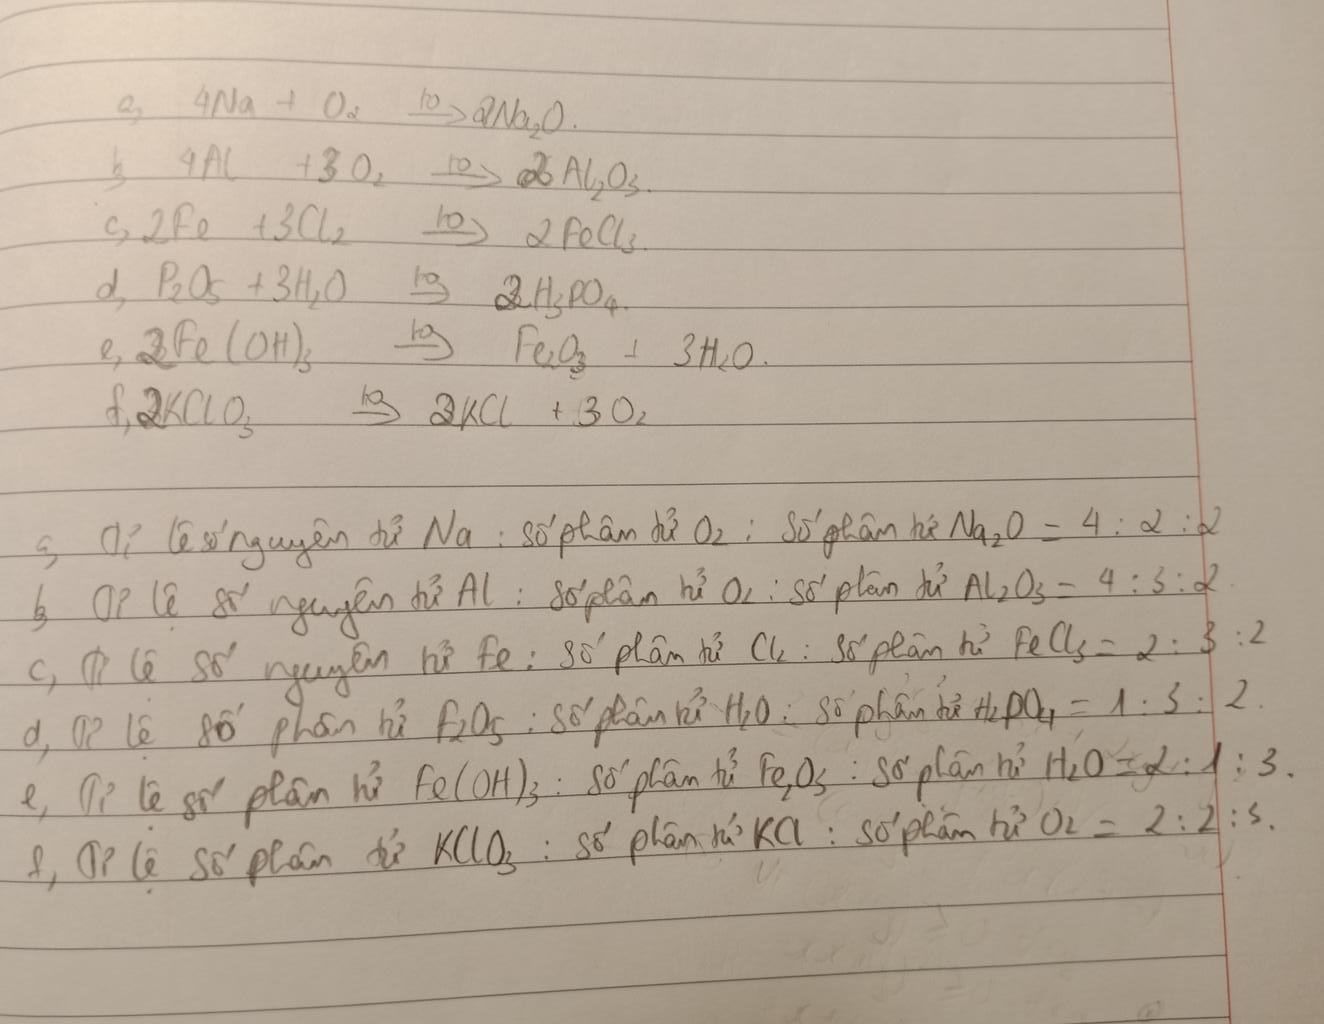 a, 4Na + O₂ t⁰→ 2Na₂O.
b, 4Al + 3O₂ t⁰→ 2Al₂O₃.
c, 2Fe + 3Cl₂ t⁰→ 2FeCl₃.
d, P₂O₅ + 3H₂O t⁰→ 2H₃PO₄.
e, 2Fe(OH)₃ t⁰→ Fe₂O₃ + 3H₂O.
f, 2KClO₃ t⁰→ 2KCl + 3O₂
a, Tỉ lệ số nguyên tử Na : số phân tử O₂ : số phân tử Na₂O = 4 : 2 : 2
b, Tỉ lệ số nguyên tử Al : số phân tử O₂ : số phân tử Al₂O₃ = 4 : 3 : 2.
c, Tỉ lệ số nguyên tử Fe : số phân tử Cl₂ : số phân tử FeCl₃ = 2 : 3 : 2
d, Tỉ lệ số phân tử P₂O₅ : số phân tử H₂O : số phân tử H₂PO₄ = 1 : 3 : 2.
e, Tỉ lệ số phân tử Fe(OH)₃ : số phân tử Fe₂O₃ : số phân tử H₂O = 2 : 1 : 3.
f, Tỉ lệ số phân tử KClO₃ : số phân tử KCl : số phân tử O₂ = 2 : 2 : 3.